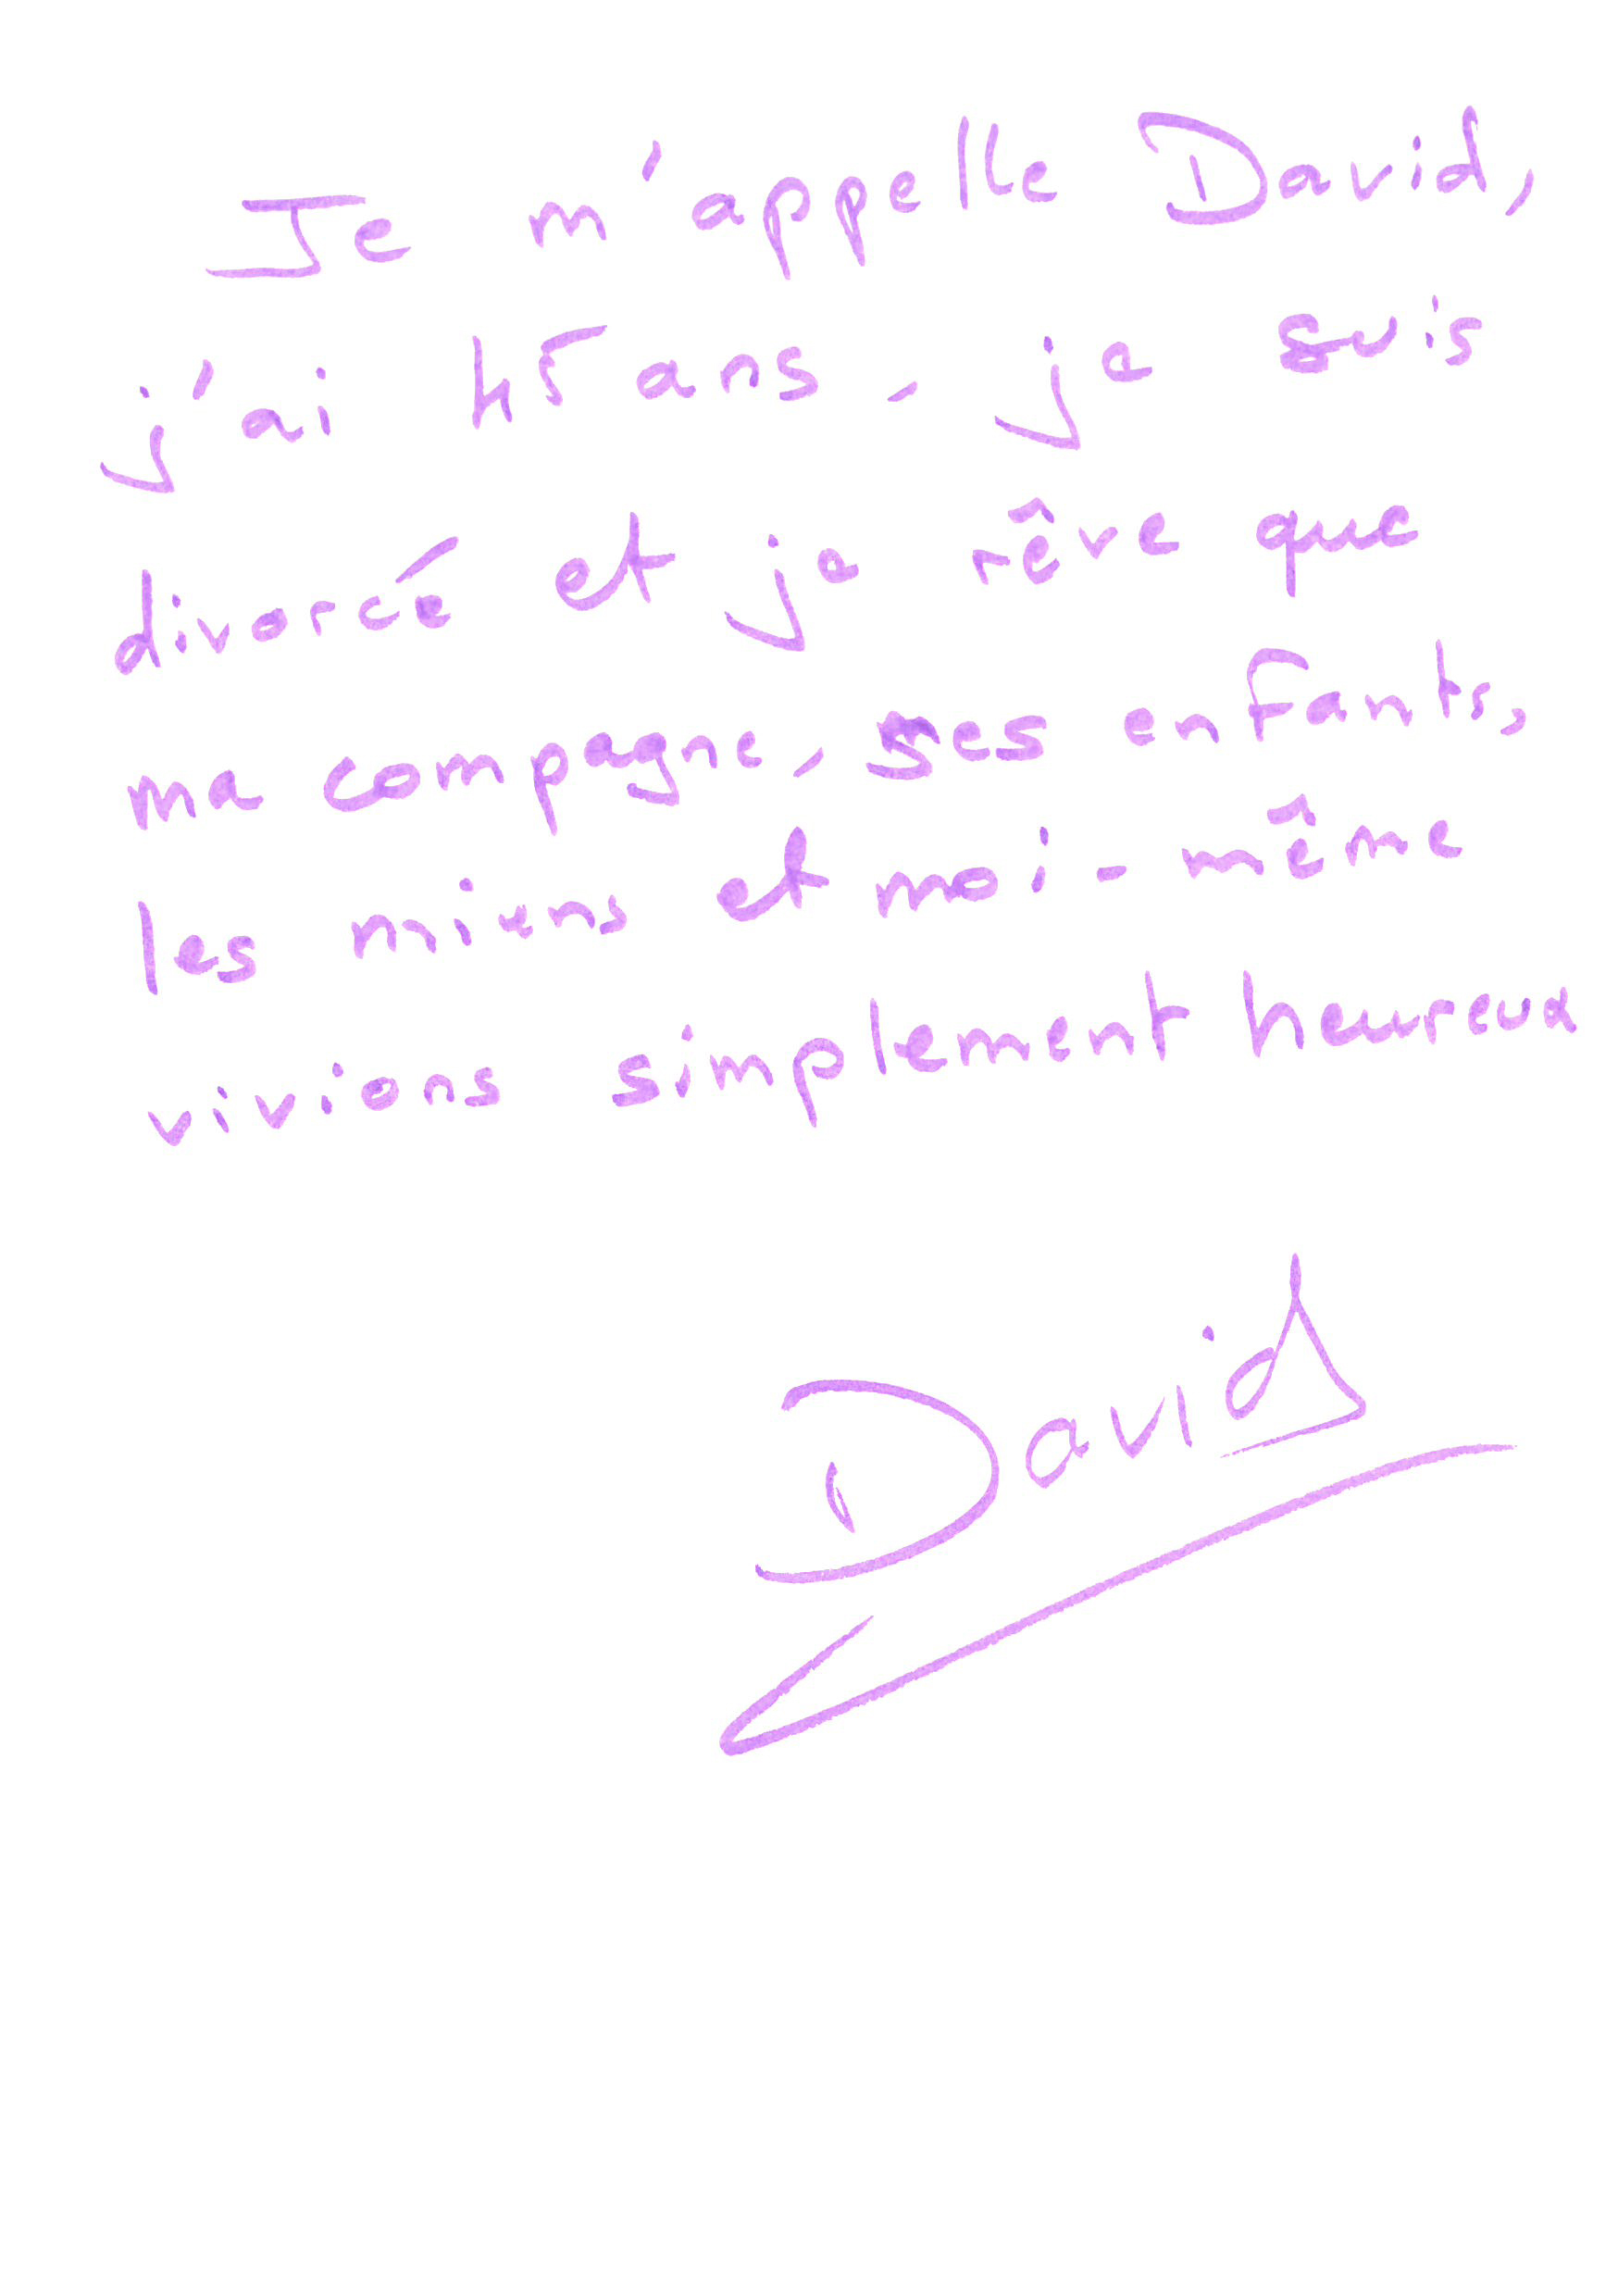 Je m'appelle David,
j'ai 45 ans, je suis
divorcé et je rêve que
ma compagne, ses enfants,
les miens et moi-même
vivions simplement heureux
David